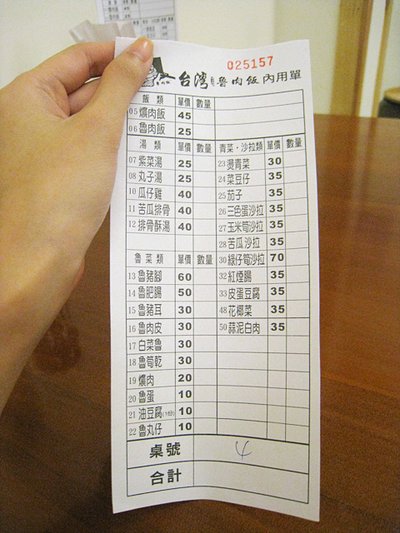 025157
台灣 魯肉飯 內用單
飯類 單價 數量
05 爌肉飯 45
06 魯肉飯 25
湯類 單價 數量
07 紫菜湯 25
08 丸子湯 25
10 瓜仔雞 40
11 苦瓜排骨 40
12 排骨酥湯 40
魯菜類 單價 數量
13 魯豬腳 60
14 魯肥腸 50
15 魯豬耳 30
16 魯肉皮 30
17 白菜魯 30
18 魯筍乾 30
19 爌肉 20
20 魯蛋 10
21 油豆腐 10
22 魯丸仔 10
青菜・沙拉類 單價 數量
23 燙青菜 30
24 菜豆仔 35
25 茄子 35
26 三色蛋沙拉 35
27 玉米筍沙拉 35
28 苦瓜沙拉 35
30 綠仔筍沙拉 70
32 紅煙腸 35
33 皮蛋豆腐 35
48 花椰菜 35
50 蒜泥白肉 35
桌號 4
合計